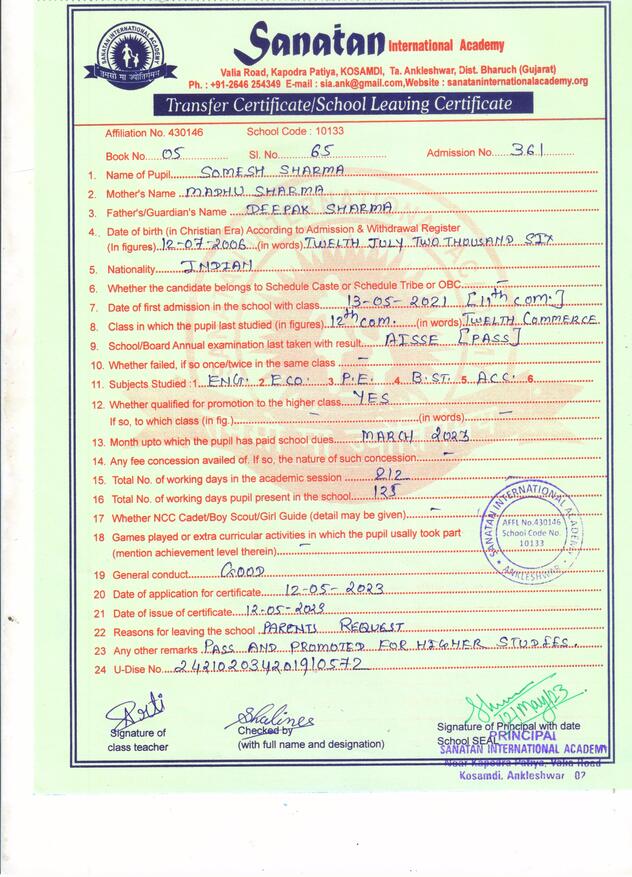 SANATAN INTERNATIONAL ACADEMY
तमसो मा ज्योतिर्गमय
Sanatan International Academy
Valia Road, Kapodra Patiya, KOSAMDI, Ta. Ankleshwar, Dist. Bharuch (Gujarat)
Ph. : +91-2646 254349 E-mail : sia.ank@gmail.com,Website : sanataninternationalacademy.org
Transfer Certificate/School Leaving Certificate
Affiliation No. 430146 School Code : 10133
Book No. 05 Sl. No. 65 Admission No. 361
1. Name of Pupil SOMESH SHARMA
2. Mother's Name MADHU SHARMA
3. Father's/Guardian's Name DEEPAK SHARMA
4. Date of birth (in Christian Era) According to Admission & Withdrawal Register
(In figures) 12-07-2006 (in words) TWELTH JULY TWO THOUSAND SIX
5. Nationality INDIAN
6. Whether the candidate belongs to Schedule Caste or Schedule Tribe or OBC. —
7. Date of first admission in the school with class 13-05-2021 [11th com.]
8. Class in which the pupil last studied (in figures) 12th com. (in words) TWELTH COMMERCE
9. School/Board Annual examination last taken with result AISSE [PASS]
10. Whether failed, if so once/twice in the same class —
11. Subjects Studied : 1. ENG. 2. ECO. 3. P.E. 4. B.ST. 5. ACC. 6.
12. Whether qualified for promotion to the higher class YES
If so, to which class (in fig.) — (in words) —
13. Month upto which the pupil has paid school dues. MARCH 2023
14. Any fee concession availed of. If so, the nature of such concession —
15. Total No. of working days in the academic session 212
16 Total No. of working days pupil present in the school 125
17 Whether NCC Cadet/Boy Scout/Girl Guide (detail may be given) —
18 Games played or extra curricular activities in which the pupil usally took part
(mention achievement level therein) —
19 General conduct GOOD
20 Date of application for certificate 12-05-2023
21 Date of issue of certificate 12-05-2023
22 Reasons for leaving the school PARENTS REQUEST
23 Any other remarks PASS AND PROMOTED FOR HIGHER STUDIES.
24 U-Dise No. 242102034201910572
SANATAN INTERNATIONAL ACADEMY
AFFL No.430146
School Code No.
10133
ANKLESHWAR
Shalines
12/May/23
Signature of
class teacher
Checked by
(with full name and designation)
Signature of Principal with date
School SEAL
PRINCIPAL
SANATAN INTERNATIONAL ACADEMY
Near Kapodra Patiya, Valia Road
Kosamdi, Ankleshwar 02